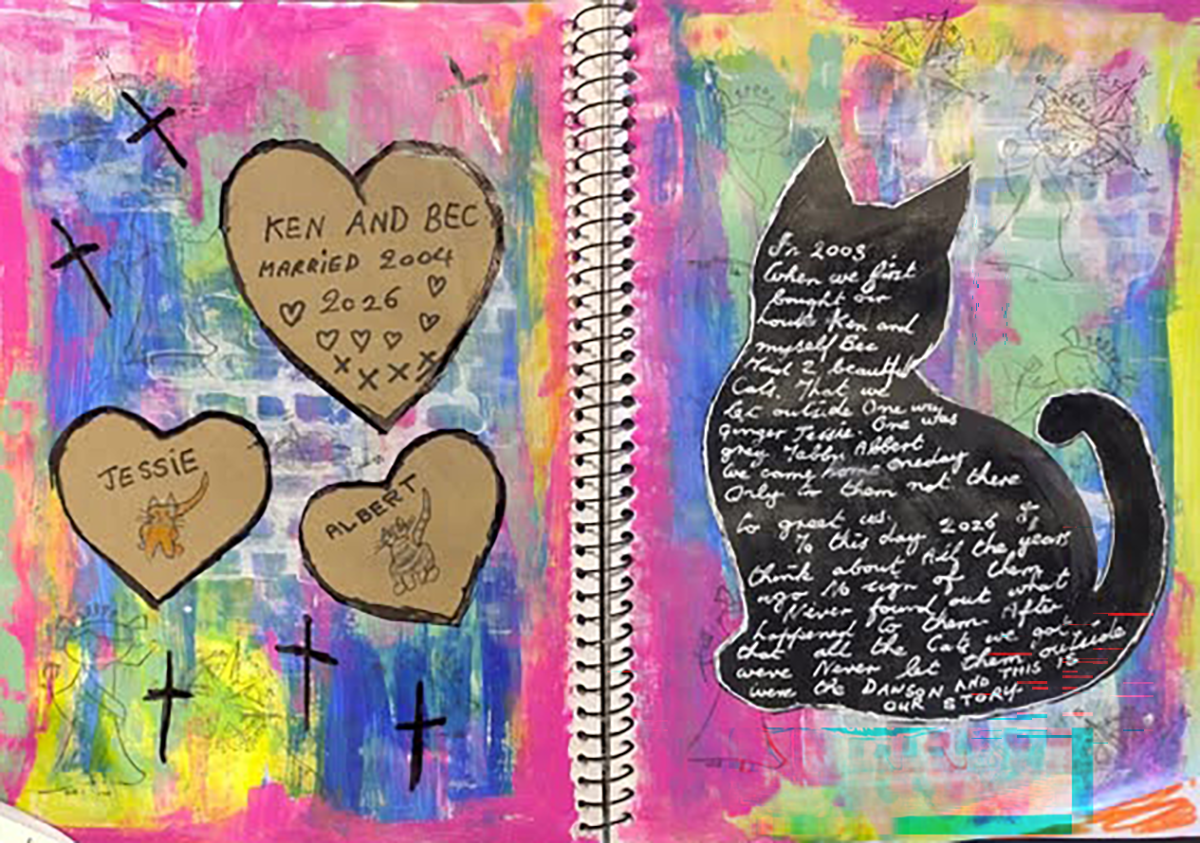 KEN AND BEC
MARRiED 2004
2026
JESSiE
ALBERT
In 2003
When we first
bought our
house Ken and
myself Bec
Had 2 beautiful
Cats. That we
Let outside One was
ginger Jessie. One was
grey Tabby Albert
We came home oneday
Only to them not there
to greet us.
To this day 2026 I
think about All the years
ago No sign of them
Never found out what
happened to them After
that all the Cats we got
were Never let them outside
were the DAWSON AND THIS IS
OUR STORY